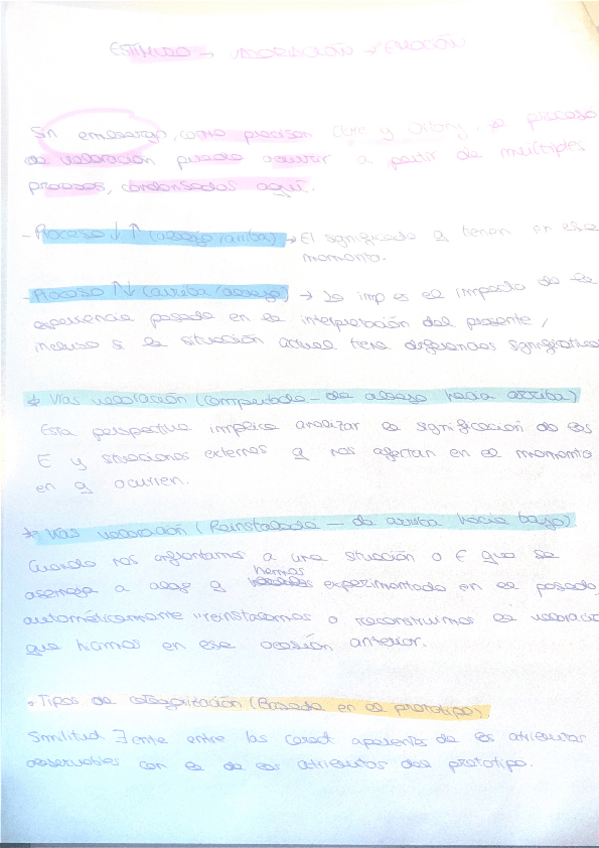 ESTÍMULO → VALORACIÓN → EMOCIÓN
Sin embargo, como precisan Clore y Ortony, el proceso
de valoración puede ocurrir a partir de múltiples
procesos, condensados aquí.
- Proceso ↓↑ (abajo/arriba) → El significado q tienen en ese
momento.
- Proceso ↑↓ (arriba/abajo) → Lo imp es el impacto de la
experiencia pasada en la interpretación del presente,
incluso si la situación actual tiene diferencias significativas
* Vías valoración (Computada - de abajo hacia arriba)
Esta perspectiva implica analizar la significación de los
E y situaciones externos q nos afectan en el momento
en q ocurren.
* Vías valoración (Reinstalada - de arriba hacia bajo)
Cuando nos enfrentamos a una situación o E que se
asemeja a algo q hemos experimentado en el pasado,
automáticamente "reinstalamos o reconstruimos la valoració
que hicimos en ese ocasión anterior.
• Tipos de categorización (Basada en el prototipo)
Similitud ∃ente entre las caract aparentes de los atributos
observables con la de los atributos del prototipo.